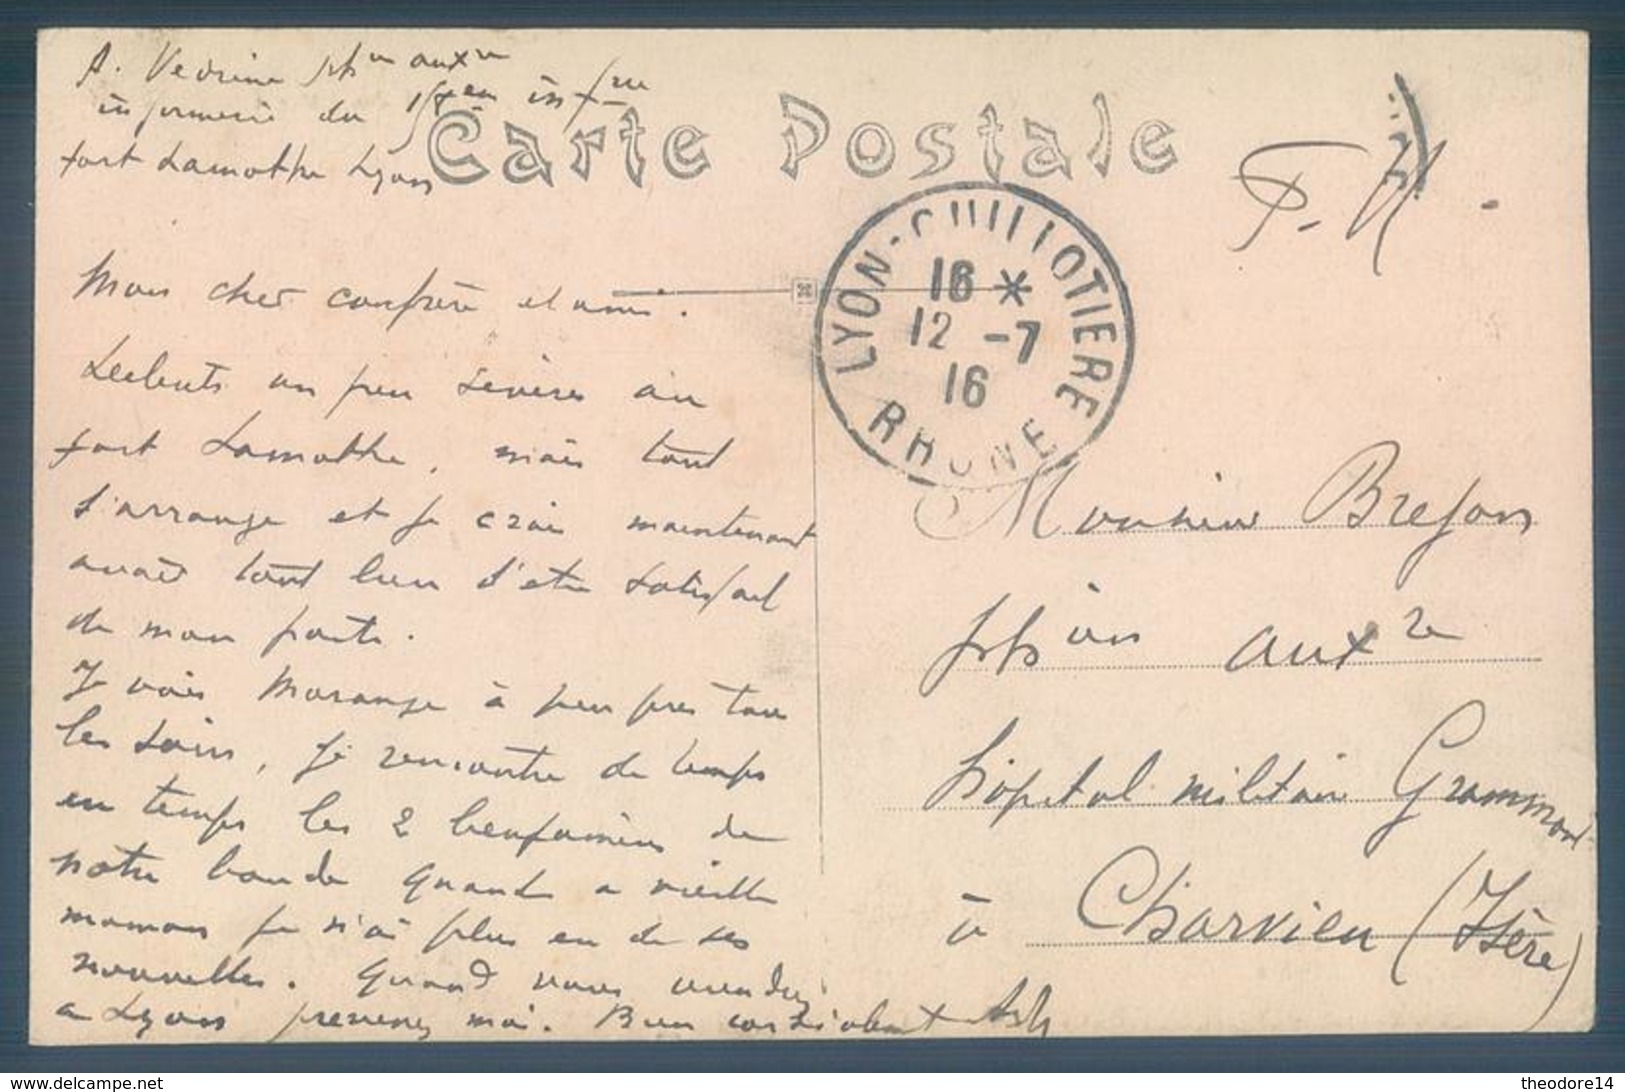 A. Vedrine phen auxre
infirmerie du 158eme infrie
fort Lamothe Lyon
Carte Postale
F. M.
LYON-GUILLOTIERE
16 *
12 -7
16
RHONE
Mon cher confrère et ami.
Les débuts un peu sévères au
fort Lamothe, mais tout
s'arrange et je crois maintenant
avoir tout lieu d'être satisfait
de mon poste.
Je vois Marange à peu près tous
les soirs, je rencontre de temps
en temps les 2 benjamins de
notre bande quant a vieille
maman je n'ai plus eu de ses
nouvelles. Quand vous viendrez
a Lyon prevenez moi. Bien cordialement
Monsieur Brejon
phien auxre
hôpital militaire Grammont
à Charvieu (Isère)
theodore14